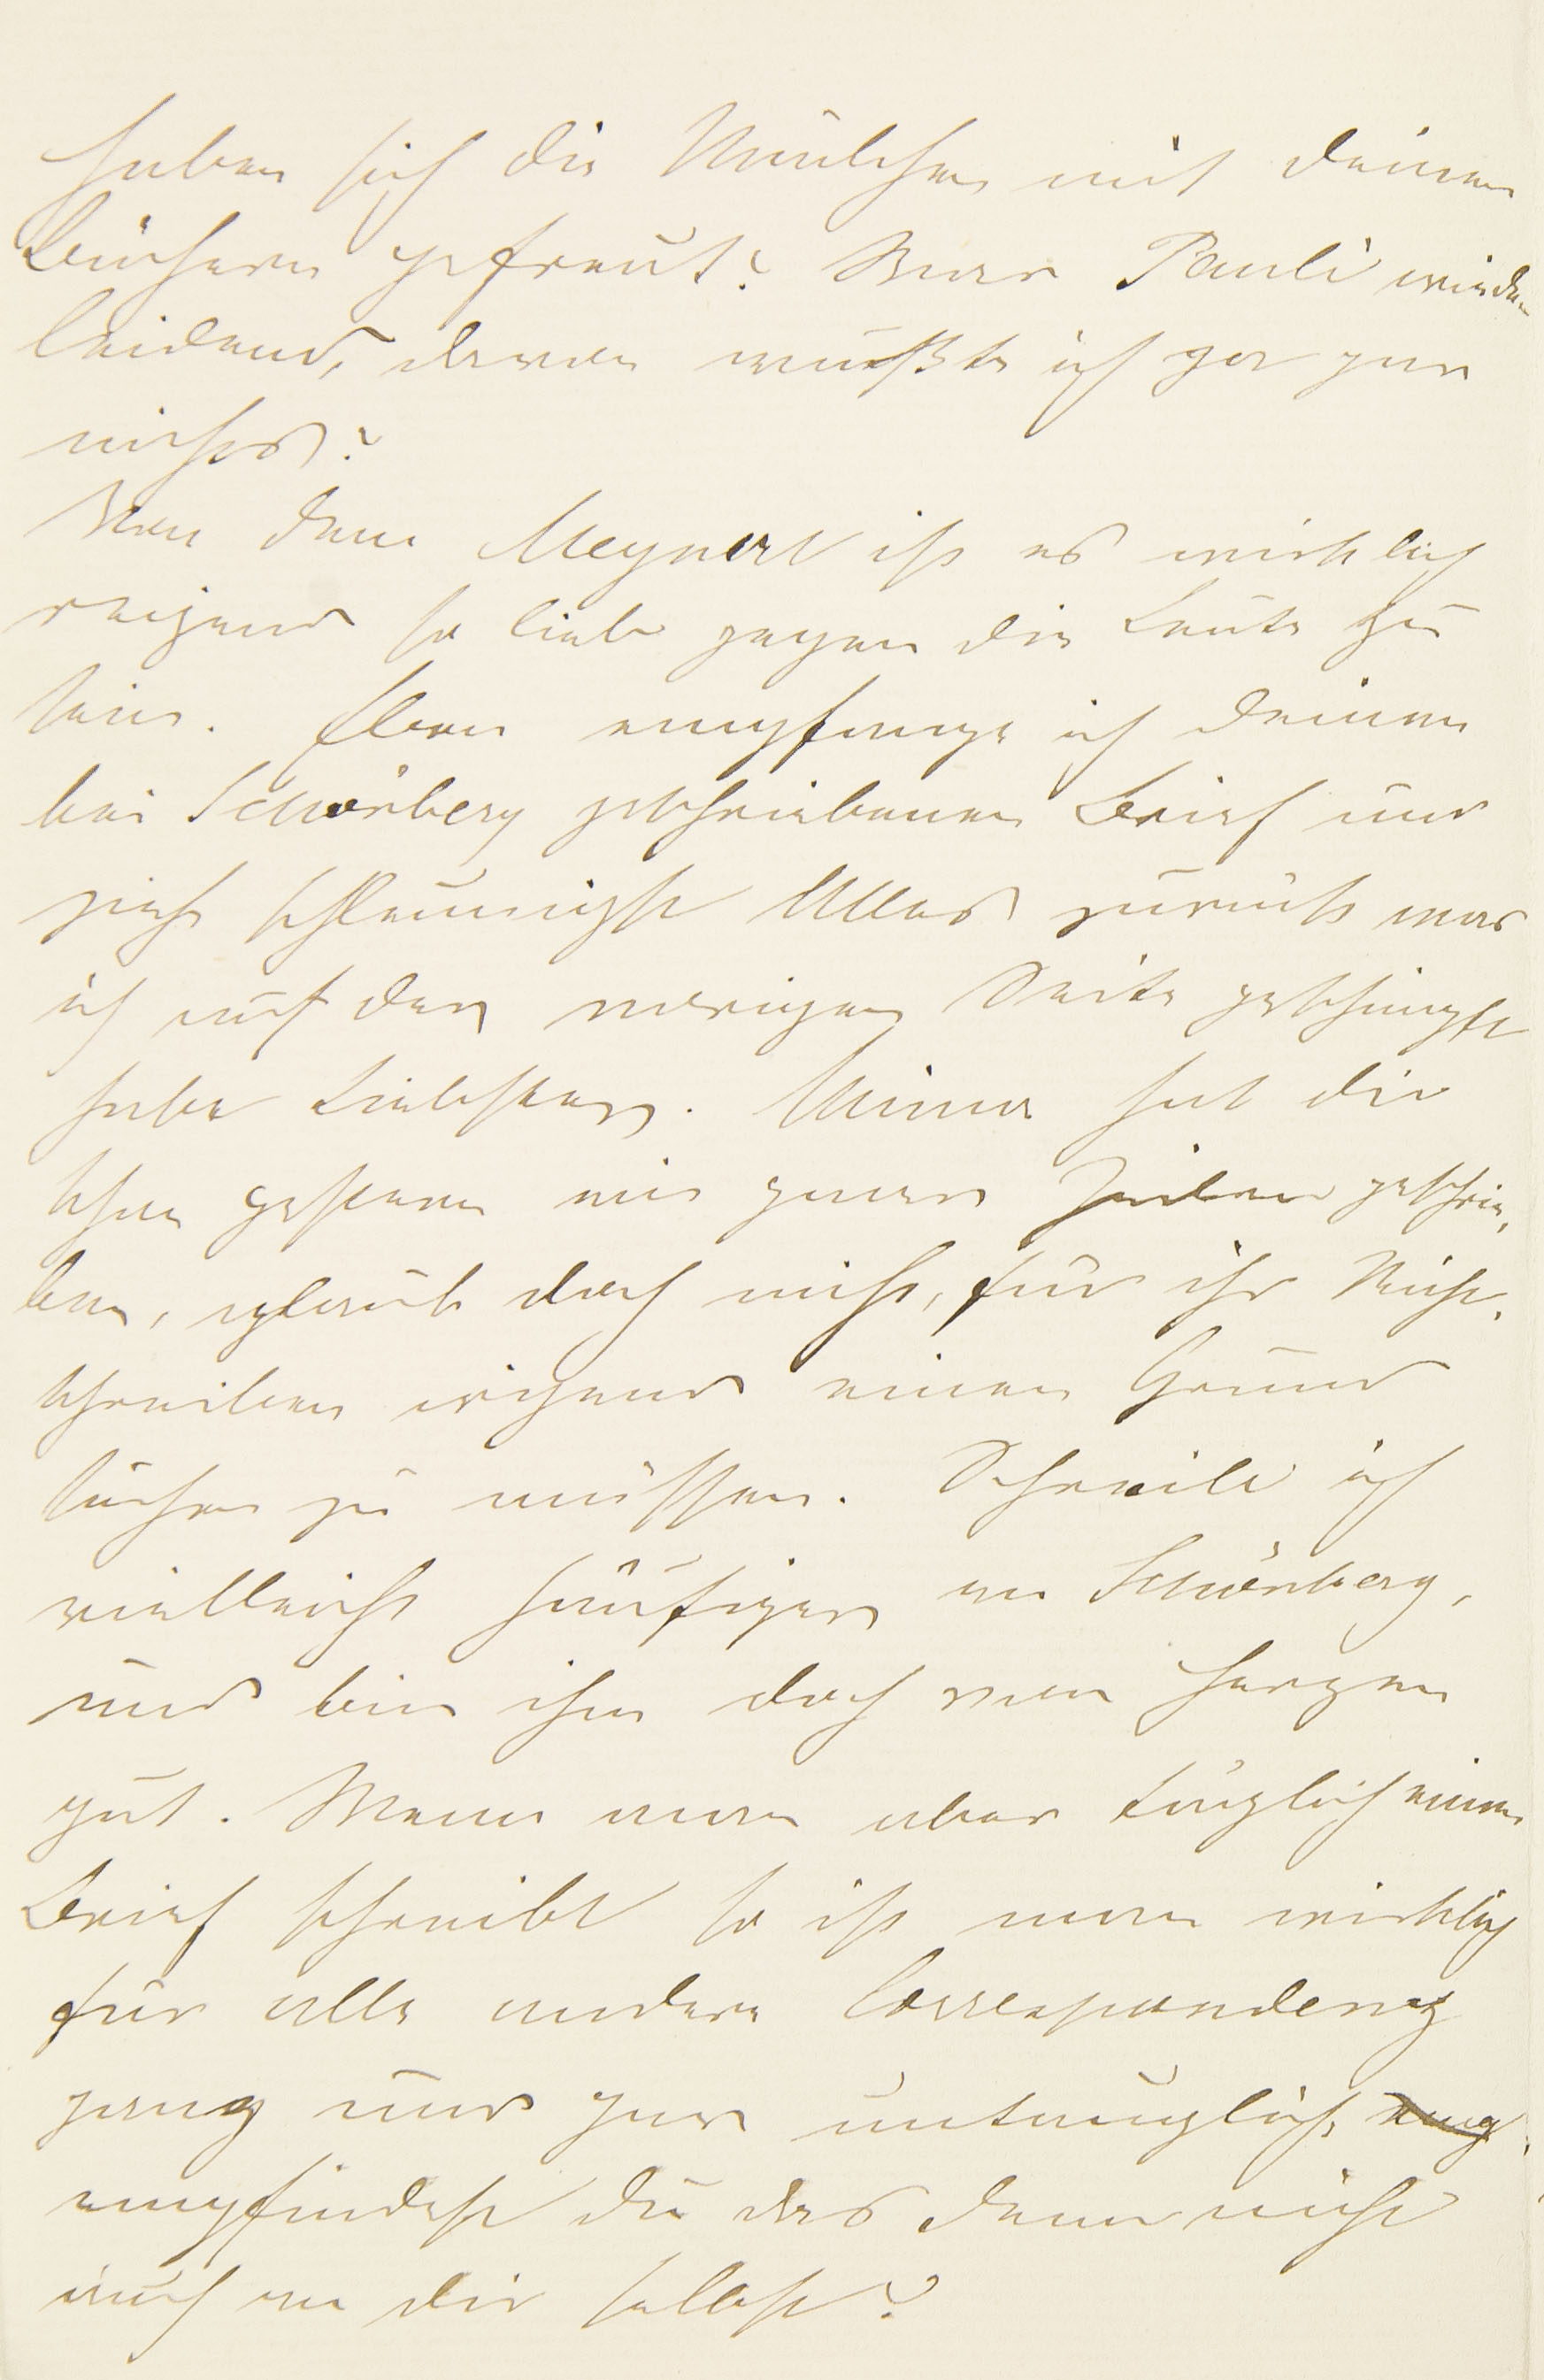 haben sich die Mädchen mit Deinen
Büchern gefreut? War Pauli wieder
leidend, davon wußte ich gar gar
nichts?
Von dem Meynert ist es wirklich
reizend so lieb gegen die Leute zu
sein. Eben empfange ich Deinen
bei Schönberg geschriebenen Brief und
ziehe schleunigst Alles zurück was
ich auf der vorigen Seite geschimpft
habe Liebster. Minna hat Dir
schon gestern ein paar Zeilen geschrie,
ben, glaub doch nicht, für ihr Nicht,
schreiben irgend einen Grund
suchen zu müssen. Schreib ich
vielleicht häufiger an Schönberg,
und bin ihm doch von Herzen
gut. Wenn man aber täglich einen
Brief schreibt so ist man wirklich
für alle andere Correspondenz
ganz und gar untauglich,
empfindest Du das denn nicht
auch an Dir selbst?